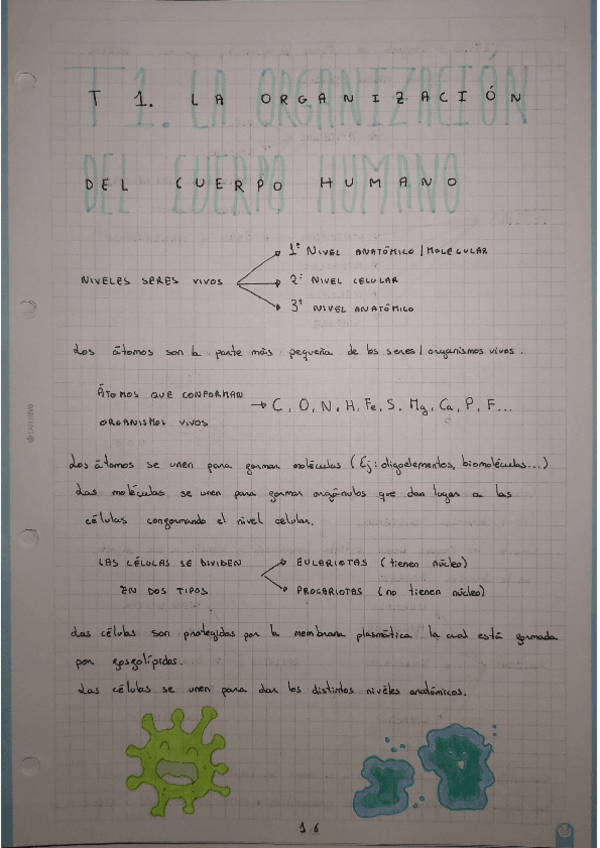 T 1. LA ORGANIZACIÓN
DEL CUERPO HUMANO
NIVELES SERES VIVOS
1º NIVEL ANATÓMICO / MOLECULAR
2º NIVEL CELULAR
3º NIVEL ANATÓMICO
Los átomos son la parte más pequeña de los seres / organismos vivos.
ÁTOMOS QUE CONFORMAN → C, O, N, H, Fe, S, Mg, Ca, P, F...
ORGANISMOS VIVOS
Los átomos se unen para formar moléculas (Ej: oligoelementos, biomoléculas...)
Las moléculas se unen para formar orgánulos que dan lugar a las
células conformando el nivel celular.
LAS CÉLULAS SE DIVIDEN
EN DOS TIPOS
EUCARIOTAS (tienen núcleo)
PROCARIOTAS (no tienen núcleo)
Las células son protegidas por la membrana plasmática la cual está formada
por fosfolípidos.
Las células se unen para dar los distintos niveles anatómicos.